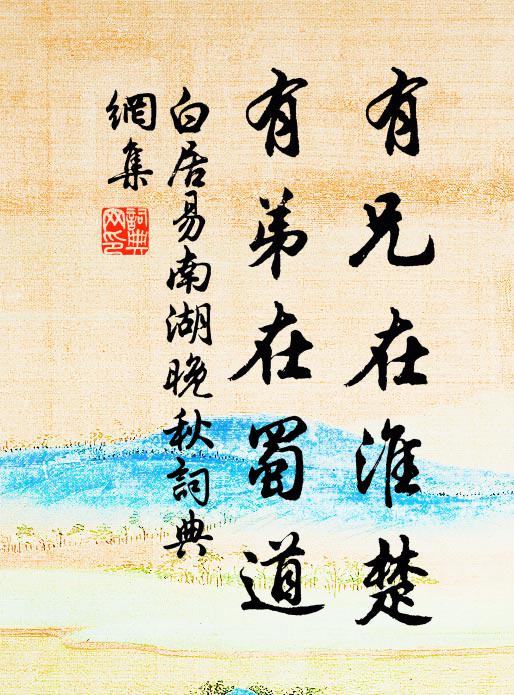 有兄在淮楚
有弟在蜀道
白居易南湖晚秋詞典
網集
詞典
网印